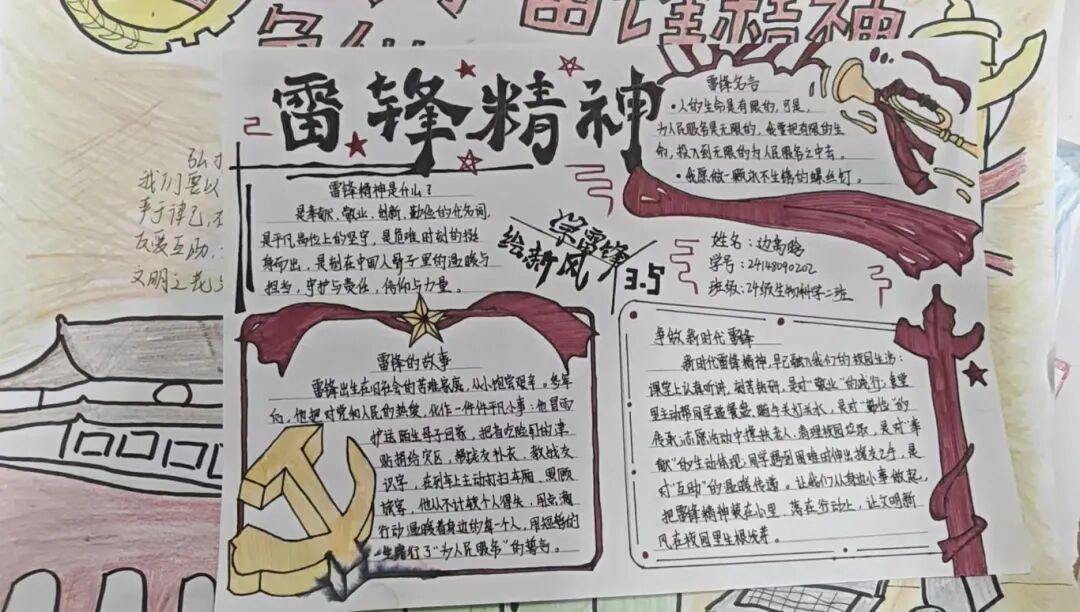 雷锋精神
雷锋精神
雷锋名言
·人的生命是有限的,可是,
为人民服务是无限的,我要把有限的生
命,投入到无限的为人民服务之中去。
·我愿做一颗永不生锈的螺丝钉。
弘扌
我们要以
严于律己,
友爱互助,
文明之花
雷锋精神是什么?
是奉献、敬业、创新、勤俭的代名词,
是平凡岗位上的坚守,是危难时刻的挺
身而出,是刻在中国人骨子里的温暖与
担当,守护与责任,信仰与力量。
学雷锋
绘新风
3.5
姓名:边尚
学号:24148090202
班级:24级生物科学二班
雷锋的故事
雷锋出生在旧社会的苦难家庭,从小饱尝艰辛。参军
后,他把对党和人民的热爱,化作一件件平凡小事:他冒雨
护送陌生母子回家,把省吃俭用的津
贴捐给灾区,帮战友补衣、教战友
识字,在列车上主动打扫车厢、照顾
旅客,他从不计较个人得失,用点滴
行动温暖着身边的每一个人,用短暂的
一生践行了“为人民服务”的誓言。
争做新时代雷锋
新时代雷锋精神,早已融入我们的校园生活:
课堂上认真听讲、刻苦钻研,是对“敬业”的践行;食堂
里主动帮同学 餐盘、随手关灯关水,是对“勤俭”的
传承;志愿活动中搀扶老人、清理校园垃圾,是对“奉
献”的生动体现;同学遇到困难时伸出援友之手,是
对“互助”的温暖传递。让我们从身边小事做起,
把雷锋精神装在心里、落在行动上,让文明新
风在校园里生根发芽。